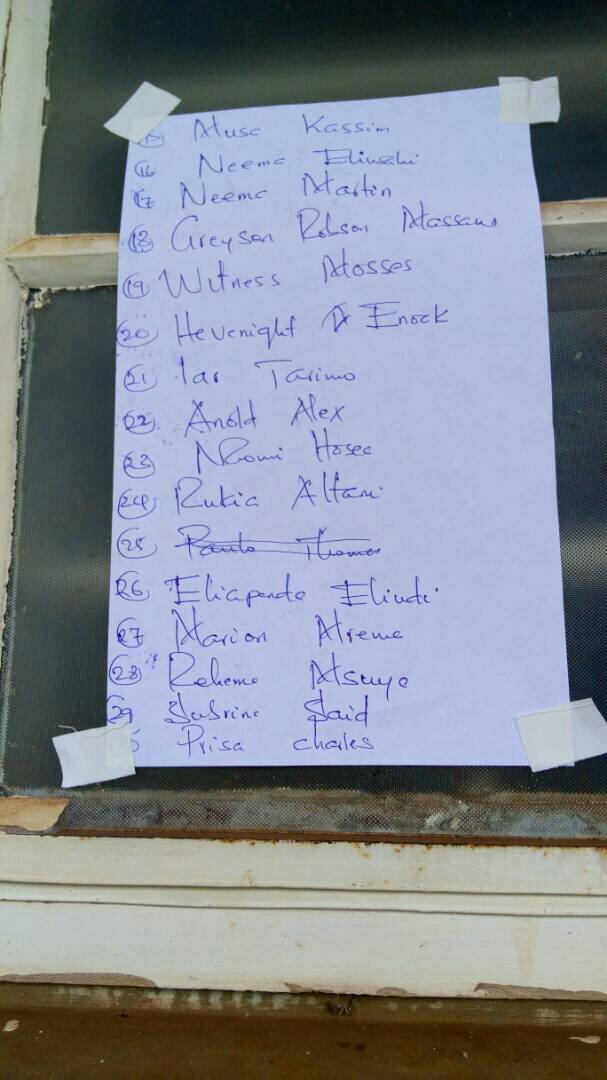 15 Musa Kassim
16 Neema Elinechi
17 Neema Martin
18 Greyson Robson Massawe
19 Witness Mosses
20 Hevenight A Enock
21 Ian Tarimo
22 Anold Alex
23 Naomi Hosea
24 Rukia Athani
25 Paulo Thomas
26 Eliapenda Eliudi
27 Marion Mrema
28 Rehema Msuya
29 Sabrina Said
Prisa Charles